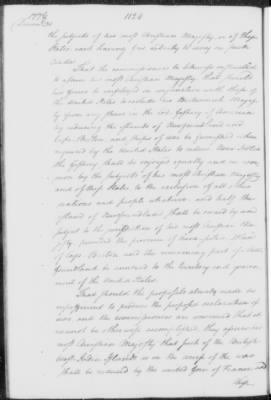 1776 1124
the subjects of his most Christian Majesty, or of these
States each having full liberty to carry on such
trade.
That the commissioners be likewise instructed
to assure his most Christian Majesty, that should
his Forces be employed in conjunction with those of
the United States to exclude his Britannick Majesty
from any share in the cod fishery of America
by reducing the islands of Newfoundland and
Cape Breton, and ships of war be furnished when
required by the United States to reduce Nova Scotia
the fishery shall be enjoyed equally and in com
mon by the subjects of his most Christian Majesty
and of these States to the exclusion of all other
nations and people whatever, and half the
island of Newfoundland shall be owned by and
subject to the jurisdiction of his most Christian Ma
jesty provided the province of Nova Scotia, island
of Cape Breton and the remaining part of New
foundland be annexed to the territory and govern
ment of the United States.
That should the proposals already made be
insufficient to produce the proposed declaration of
war and the commissioners are convinced that it
cannot be otherwise accomplished, they assure his
most Christian Majesty that such of the British
West India Islands as in the course of the war
shall be reduced by the united force of France and
these